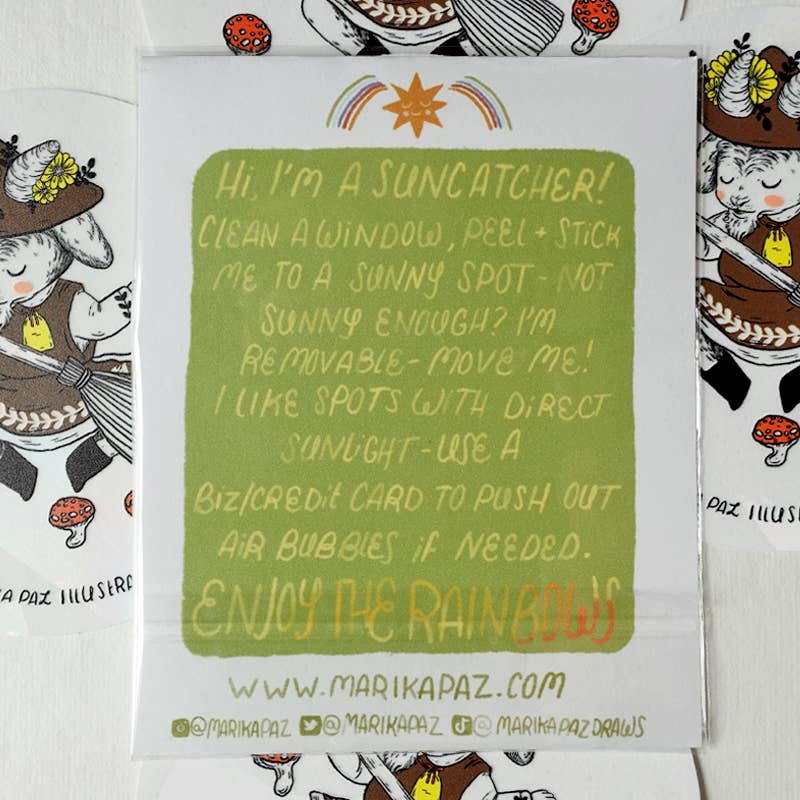 Hi, I'M A SUNCATCHER!
CLEAN A WINDOW, PEEL + STICK
ME TO A SUNNY SPOT - NOT
SUNNY ENOUGH? I'M
REMOVABLE - MOVE ME!
I LIKE SPOTS WITH DIRECT
SUNLIGHT - USE A
BIZ/CREDIT CARD TO PUSH OUT
AIR BUBBLES IF NEEDED.
ENJOY THE RAINBOWS
WWW.MARIKAPAZ.COM
@MARIKAPAZ @MARIKAPAZ @MARIKAPAZDRAWS
KA PAZ ILLUSTRA
PAZ ILLUS